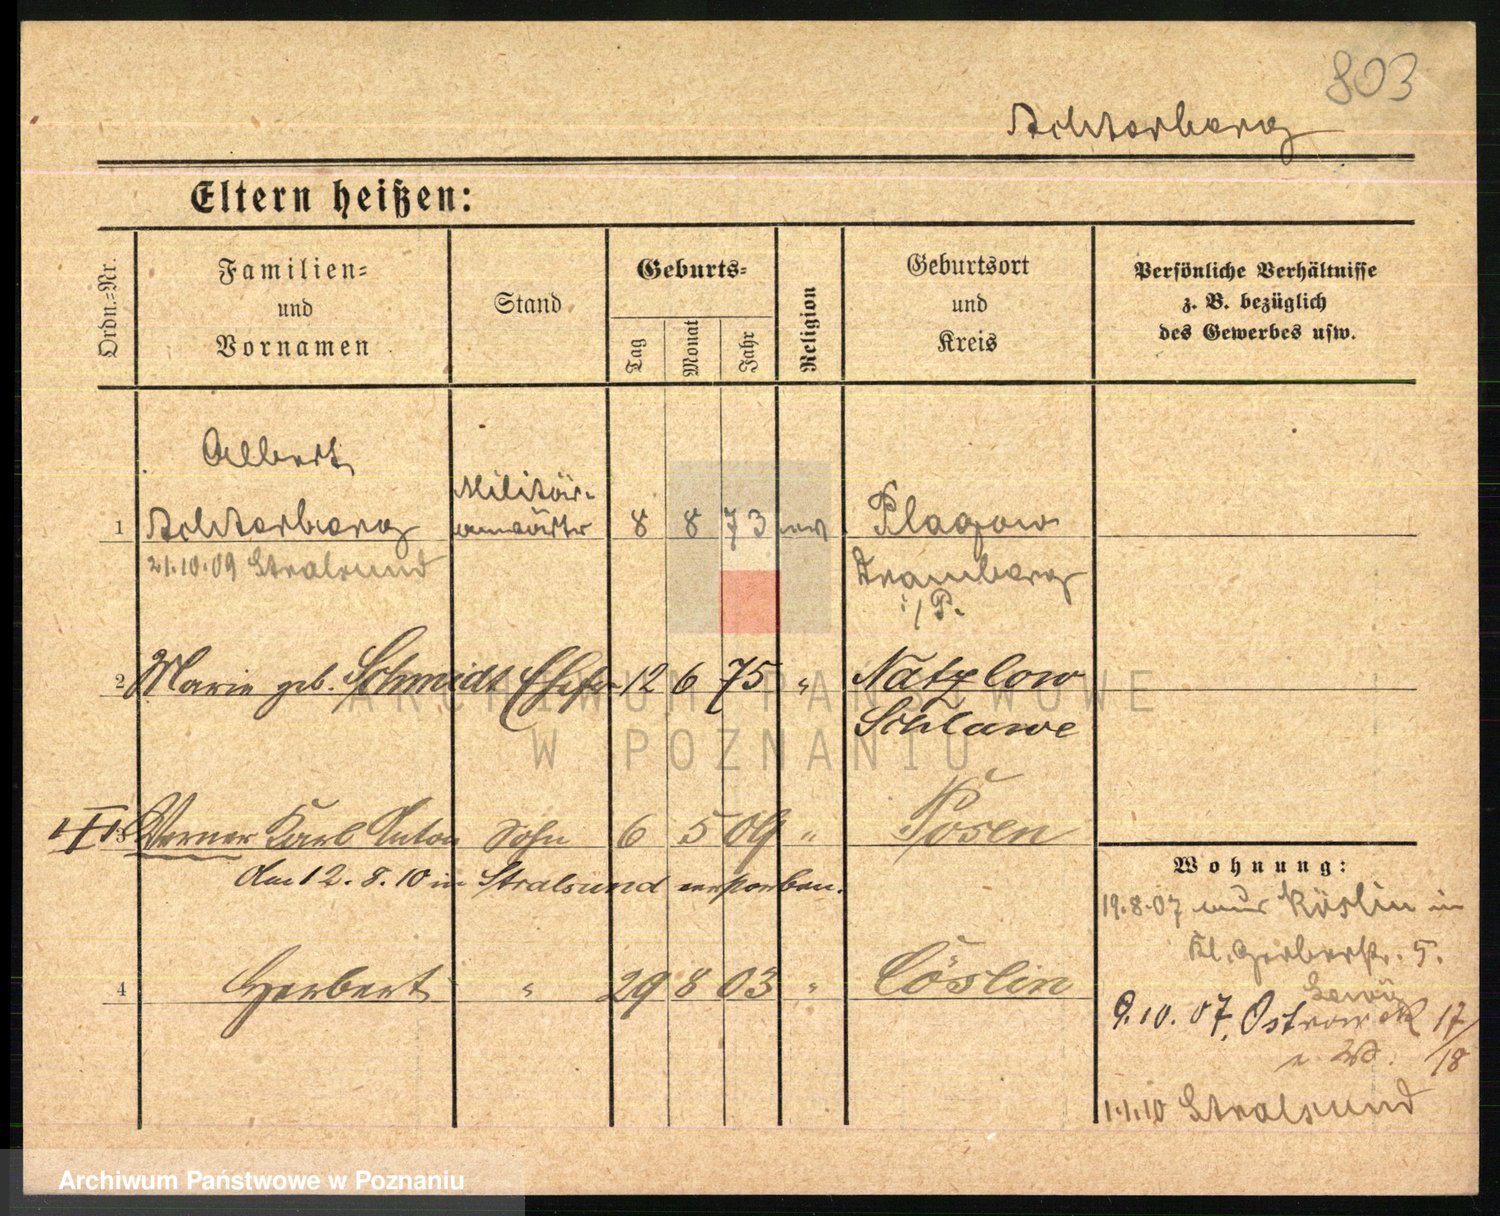 803
Achterberg
Eltern heißen:
Ordn.=Nr.
Familien=
und
Vornamen
Stand
Geburts=
Tag
Monat
Jahr
Religion
Geburtsort
und
Kreis
Persönliche Verhältnisse
z. B. bezüglich
des Gewerbes usw.
Albert
Militär-
1 Achterberg anwärter 8 8 73 ev Plagow
21.10.09 Stralsund Dramberg
i/P.
2 Marie geb. Schmidt Ehefr 12 6 75 " Natzlow
Schlawe
3 Werner Karl Anton Sohn 6 5 09 " Posen
am 12.8.10 in Stralsund verstorben.
4 Herbert " 29 8 03 " Cöslin
Wohnung:
19.8.07 aus Köslin in
Kl. Gerberstr. 5.
9.10.07. Ostrow 17/18
1.1.10 Stralsund
ARCHIWUM PAŃSTWOWE
W POZNANIU
Archiwum Państwowe w Poznaniu